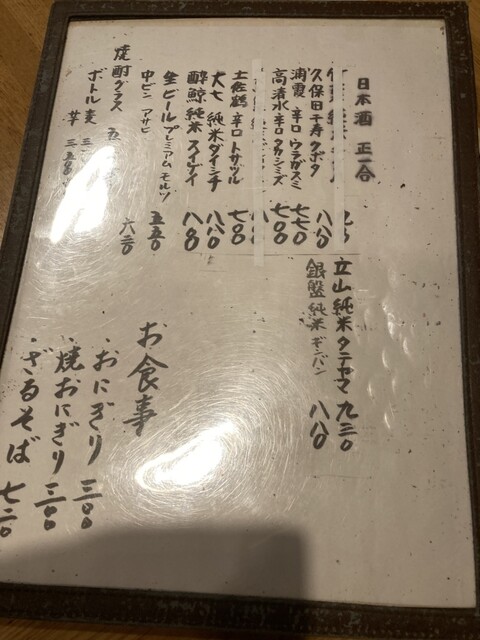 日本酒 正一合
久保田千寿クボタ 八八〇
浦霞 辛口 ウラガスミ 七七〇
高清水 辛口 タカシミズ 七〇〇
土佐鶴 辛口 トサヅル 七〇〇
大七 純米 ダイシチ 八八〇
酔鯨 純米 スイゲイ 八八〇
立山 純米 タテヤマ 九三〇
銀盤 純米 ギンバン 八八〇
生ビール プレミアム モルツ 五五〇
中ビン アサヒ 六六〇
焼酎グラス
ボトル 麦
芋
お食事
・おにぎり 三〇〇
・焼おにぎり 三〇〇
・ざるそば 七二〇